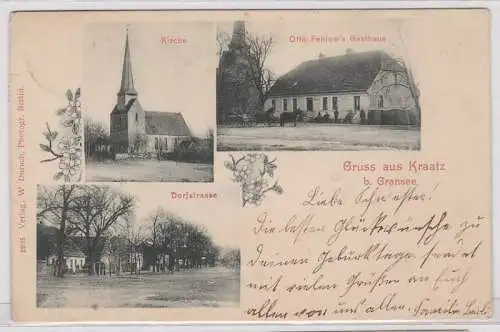 Kirche
Otto Fehlow's Gasthaus
Gruss aus Kraatz
b. Gransee.
Dorfstrasse
Verlag. W Durach, Photogr. Berlin.
Liebe Schwester!
Die besten Glückwünsche zu
Deinen Geburtstage sendet
mit vielen Grüßen an Euch
allen von uns allen. Familie